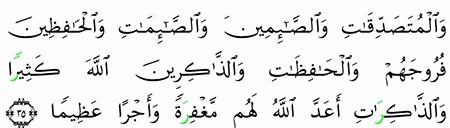 وَٱلْمُتَصَدِّقَٰتِ وَٱلصَّٰٓئِمِينَ وَٱلصَّٰٓئِمَٰتِ وَٱلْحَٰفِظِينَ
فُرُوجَهُمْ وَٱلْحَٰفِظَٰتِ وَٱلذَّٰكِرِينَ ٱللَّهَ كَثِيرًا
وَٱلذَّٰكِرَٰتِ أَعَدَّ ٱللَّهُ لَهُم مَّغْفِرَةً وَأَجْرًا عَظِيمًا ٣٥